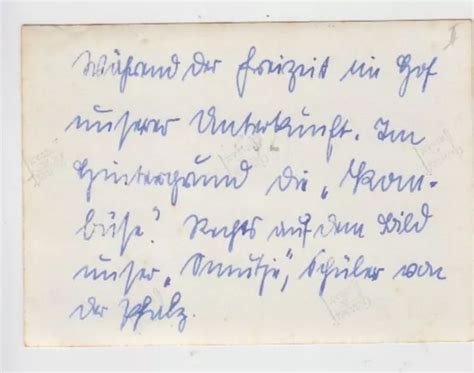 Während der Freizeit im Hof
unserer Unterkunft. Im
Hintergrund die „Kom-
büse”. Rechts auf dem Bild
unser „Smutje”, Schüler von
der Pfalz.